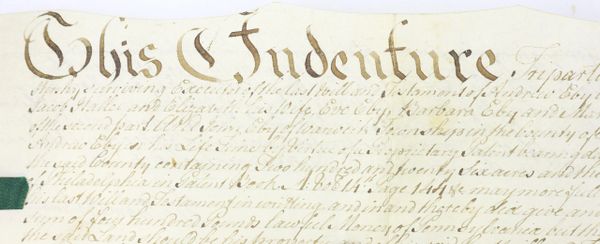 This Indenture Tripartite
surviving Executor of the last Will and Testament of Andrew Eby
Jacob and Elizabeth his Wife, Eve Eby, Barbara Eby and
of the second part. And Eby of Warwick Township in the County of
Andrew Eby in his Life time by virtue of a Proprietary Patent bearing
the said County containing Two hundred and twenty Six acres and the
of Philadelphia in Patent Book Page may more full
his last Will and Testament in writing and thereby did give and
Sum of four hundred Pounds lawful Money of Pennsylvania
the said Land should be his property